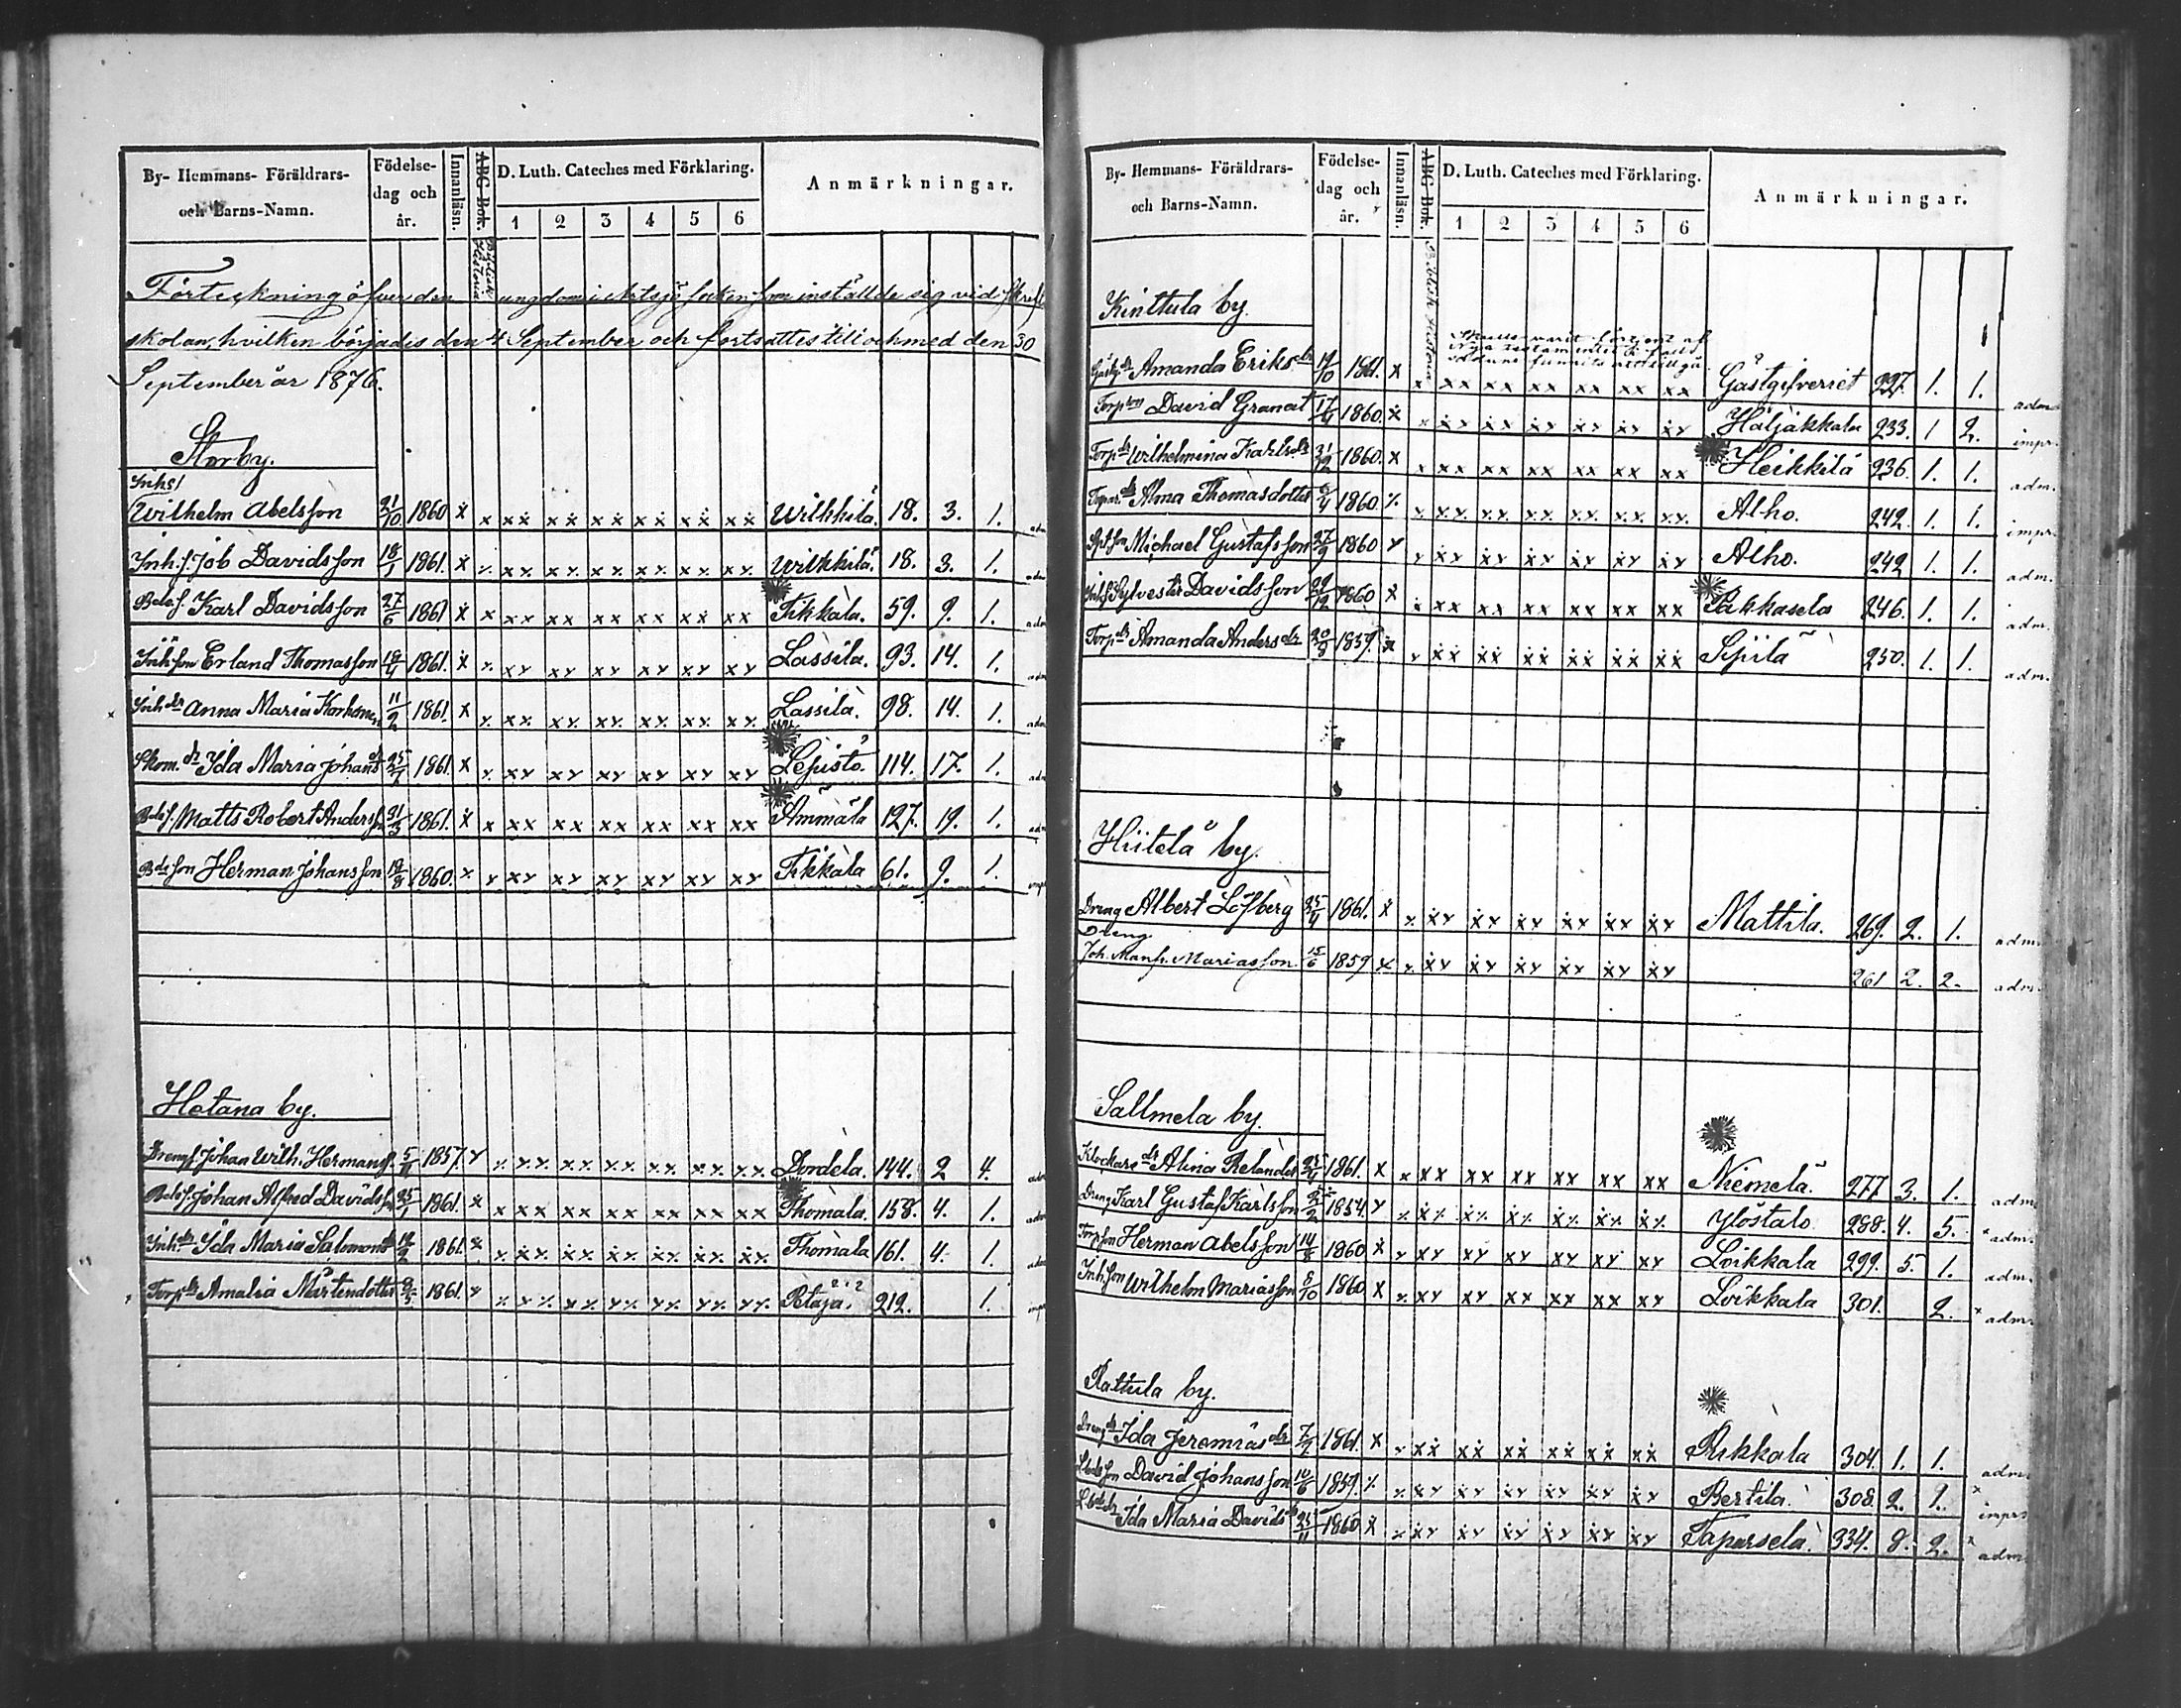 By- Hemmans- Föräldrars- och Barns-Namn. Födelse-dag och år. Innanläsn. ABC-Bok. D. Luth. Cateches med Förklaring. Anmärkningar.
1 2 3 4 5 6
Förteckning öfver den ungdom i som inställde sig vid
skolan, hvilken börjades den 4 September och fortsattes till och med den 30
September år 1876.
Storby.
Inhs/
Wilhelm Abelsson 21/10 1860 x x xx xx xx xx xx xx Wilkkilä. 18. 3. 1.
Inh.s. Job Davidsson 18/3 1861. x x xx xx xx xx xx xx Wilkkilä. 18. 3. 1.
Karl Davidsson 27/6 1861 x x xx xx xx xx xx xx Tikkala. 59. 9. 1.
Inh. son Erland Thomasson 1861. x x xx xx xx xx xx xx Lassila. 93. 14. 1.
Inh. dr Anna Maria Korhonen 11/2 1861. x x xx xx xx xx xx xx Lassila. 98. 14. 1.
Skom. dr Ida Maria Johans dr 25/7 1861. x x xx xx xx xx xx xx Lepistö. 114. 17. 1.
Matts Robert Anders 31/3 1861. x x xx xx xx xx xx xx Ämmälä 127. 19. 1.
son Herman Johansson 19/8 1860. x x xx xx xx xx xx xx Tikkala 61. 9. 1.
Hetana by.
Drengs. Johan Wilh. Hermans 1857. x x xx xx xx xx xx xx Dordela. 144. 2 4.
Johan Alfred Davids 25/1 1861. x x xx xx xx xx xx xx Thomala. 158. 4. 1.
Inh. dr Ida Maria Salomons dr 1861. x x xx xx xx xx xx xx Thomala 161. 4. 1.
Torp dr Amalia Mårtendotter 1861. x x xx xx xx xx xx xx Petäjä. 212. 1.
By- Hemmans- Föräldrars- och Barns-Namn. Födelse-dag och år. Innanläsn. ABC-Bok. D. Luth. Cateches med Förklaring. Anmärkningar.
1 2 3 4 5 6
Kinttula by.
Amanda Eriks dr 19/10 1861. x x xx xx xx xx xx xx Gästgifveriet 227. 1. 1. adm.
Torp son David Granat 17/4 1860. x x xx xx xx xx xx xx Häljäkkälä 233. 1 2. impr.
Torp dr Wilhelmina Karls dr 31/12 1860. x x xx xx xx xx xx xx Heikkilä 236. 1. 1. adm.
Alma Thomasdotter 1860. x x xx xx xx xx xx xx Alho. 242. 1. 1. impr.
son Michael Gustafsson 27/9 1860 x x xx xx xx xx xx xx Alho. 242 1. 1. adm.
Sylvester Davidsson 29/12 1860 x x xx xx xx xx xx xx Pakkasela 246. 1. 1. adm.
Torp dr Amanda Anders dr 20/8 1859. x x xx xx xx xx xx xx Sipilä 250. 1. 1. adm.
Hiitelä by.
Dreng Albert Löfberg 25/4 1861. x x xx xx xx xx xx xx Mattila. 269. 2. 1. adm.
Dreng
Joh. Manf. Mariasson 15/6 1859 x x xx xx xx xx xx xx 261 2. 2. adm.
Sallmela by.
Klockare dr Alina Relander 25/4 1861. x x xx xx xx xx xx xx Niemelä. 277 3. 1. adm.
Dreng Karl Gustaf Karlsson 1854. x x xx xx xx xx xx xx Ylöstalo. 288. 4. 5. adm.
Torp son Herman Abelsson 14/8 1860 x x xx xx xx xx xx xx Loikkala 299. 5 1. adm.
Inh. son Wilhelm Mariasson 8/10 1860 x x xx xx xx xx xx xx Loikkala 301. 2. x adm.
Rattula by.
Dreng dr Ida Jeremias dr 1861. x x xx xx xx xx xx xx Pukkala 304. 1. 1. adm.
son David Johansson 10/6 1859. x x xx xx xx xx xx xx Bertila. 308. 2. 2. x impr.
Ida Maria Davids 25/11 1860 x x xx xx xx xx xx xx Taparsela. 334. 8. 2. x adm.